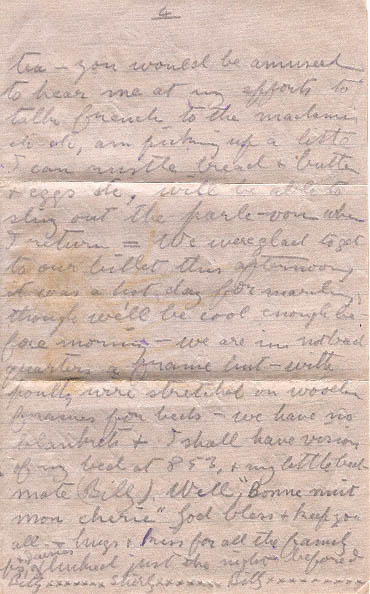 4
tea - you would be amused
to hear me at my efforts to
talk french to the madams
etc etc, am picking up a little
I can rustle bread & butter
& eggs etc, will be able to
sling out the parle-vou when
I return = We were glad to get
to our billet this afternoon,
it was a hot day for marching,
though we'll be cool enough be
fore morning - we are in not bad
quarters a frame hut - with
poultry wire stretched on wooden
frames for beds - we have no
blankets & I shall have visions
of my bed at 853, & my little bed
mate (Billy). Well, "Bonne nuit
mon cherie" God bless & keep you
all - hugs & kiss for all the family
ps. just the night before
Billy xxxxxxx Billy xxxxxxxx